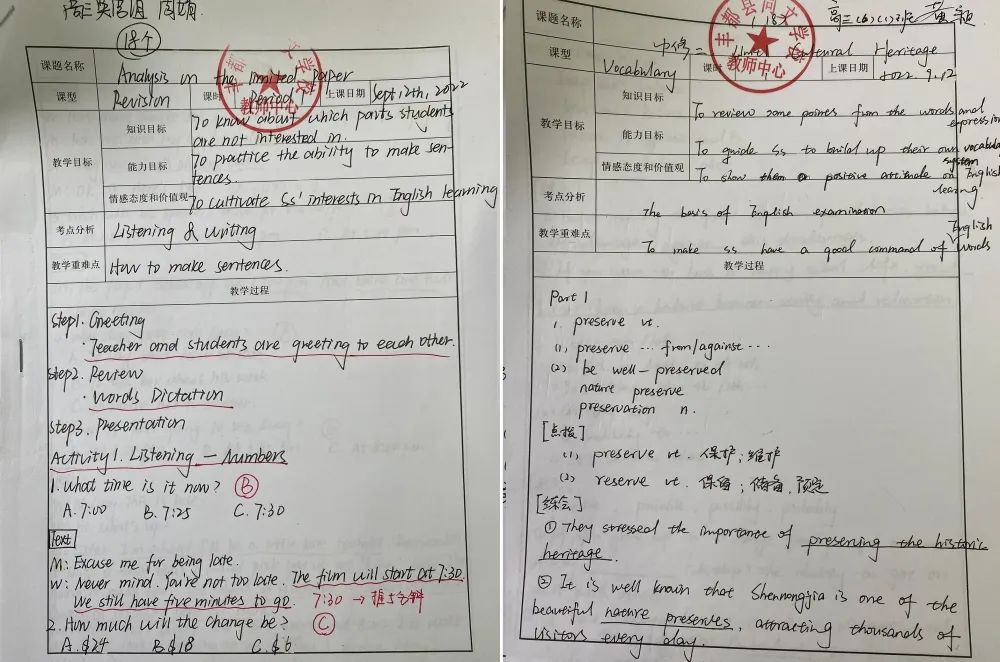 高三英语组 周娟
18个
课题名称
Analysis in the limited paper
课型 Revision 课时 Period 1 上课日期 Sept 12th, 2022
教学目标
知识目标 To know about which parts students are not interested in.
能力目标 To practice the ability to make sen-
tences.
情感态度和价值观 To cultivate Ss' interests in English learning
考点分析 Listening & writing
教学重难点 How to make sentences.
教学过程
Step1. Greeting
· Teacher and students are greeting to each other.
Step2. Review
· Words Dictation
Step3. Presentation
Activity 1. Listening — Numbers
1. What time is it now? B
A. 7:00 B. 7:25 C. 7:30
Text
M: Excuse me for being late.
W: Never mind. You're not too late. The film will start at 7:30.
We still have five minutes to go. 7:30 → 推5分钟
2. How much will the change be? C
A. $24 B. $18 C. $6
丰都县问文学校
教师中心
课题名称
18个
高三(6)(1)班 黄颖
Cultural Heritage
课型 Vocabulary 课时 1 上课日期 2022.9.12
教学目标
知识目标 To review some points from the words and
expression
能力目标 To guide Ss to build up their own vocabulary
system
情感态度和价值观 To show positive attitude on English
learning
考点分析 The basis of English examination
教学重难点 To make ss have a good command of English words
教学过程
Part 1
1. preserve vt.
(1) preserve ... from/against ...
(2) be well-preserved
nature preserve
preservation n.
[点拨]
(1) preserve vt. 保护;维护
(2) reserve vt. 保留;储备,预定
[练会]
① They stressed the importance of preserving the historic
heritage.
② It is well known that Shennongjia is one of the
beautiful nature preserves, attracting thousands of
visitors every day.
丰都县问文学校
教师中心